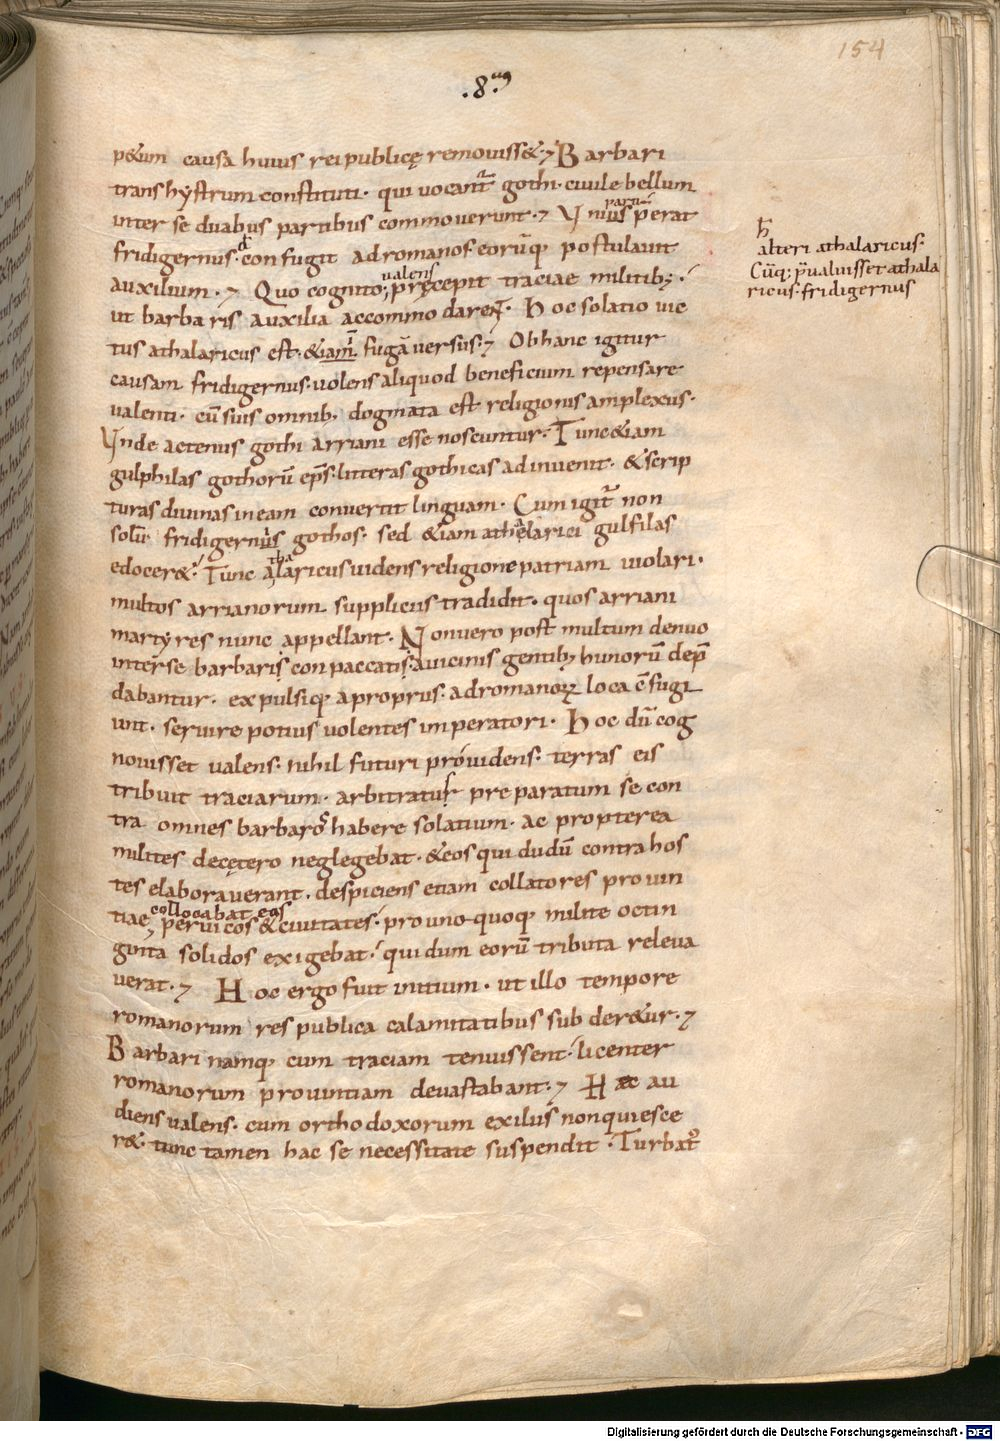 154
.8.
p&um causa huius rei publicę remouiss&. Barbari
trans hystrum constituti. qui uocant gothi. ciuile bellum
inter se duabus partibus commouerunt. Vnius partis perat
fridigernus. confugit ad romanos. eorūq postulauit
auxilium. Quo cognito; ualens pręcepit traciae militib;
ut barbaris auxilia accommodarent. Hoc solatio uic
tus athalaricus est. &iam fugā uersus. Ob hanc igitur
causam fridigernus. uolens aliquod beneficium repensare
ualenti. cū suis omnib; dogmata est religionis amplexus.
Vnde actenus gothi arriani esse noscuntur. Tunc &iam
gulphilas gothorū ep̄s. litteras gothicas adinuenit. & scrip
turas diuinas in eam conuertit linguam. Cum igit non
solū fridigernus gothos. sed &iam athalarici gulfilas
edocer&. Tunc athalaricus uidens religione patriam uiolari.
multos arrianorum suppliciis tradidit. quos arriani
martyres nunc appellant. Non uero post multum denuo
inter se barbaris conpaccatis. a uicinis gentib; hunorū dep̄
dabantur. expulsiq a propriis. ad romanorum loca c̄fugi
unt. seruire potius uolentes imperatori. Hoc dū cog
nouisset ualens. nihil futuri prouidens. terras eis
tribuit traciarum. arbitratur preparatum se con
tra omnes barbaros habere solatium. ac propterea
milites decętero neglegebat. & eos qui dudū contra hos
tes elaborauerant. despiciens etiam collatores prouin
tiae, collocabat eos per uicos & ciuitates. pro uno quoq milite octin
ginta solidos exigebat. qui dum eorū tributa releua
uerat. Hoc ergo fuit initium. ut illo tempore
romanorum res publica calamitatibus subder&ur.
Barbari namq cum traciam tenuissent. licenter
romanorum prouintiam deuastabant. Hec au
diens ualens. cum orthodoxorum exiliis non quiesce
r&. tunc tamen hac se necessitate suspendit. Turbat
h̄
alteri athalaricus.
Cūq; p̄ualuisset athala
ricus. fridigernus
Digitalisierung gefördert durch die Deutsche Forschungsgemeinschaft - DFG